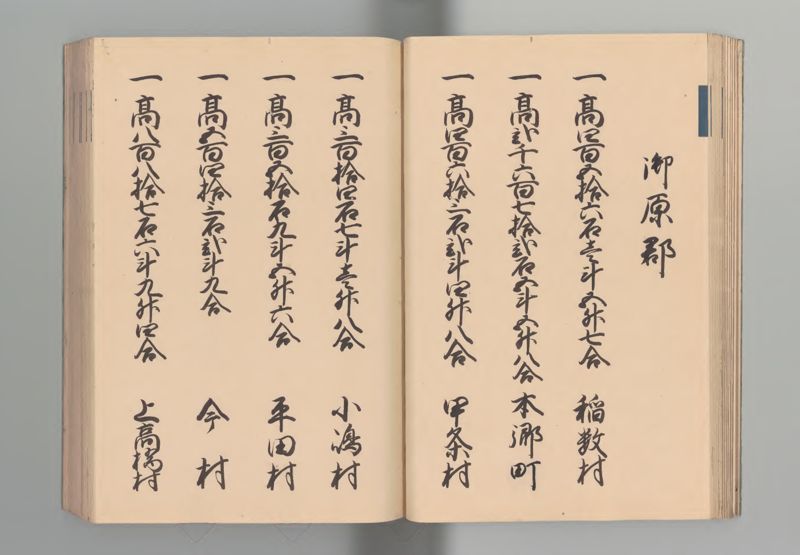 御原郡
一高四百五拾六石壱斗五升七合 稲数村
一高弐千六百七拾弐石五斗五升八合 本郷町
一高四百六拾三石弐斗四升八合 甲条村
一高三百拾四石七斗壱升八合 小嶋村
一高三百五拾石九斗五升六合 平田村
一高五百四拾三石弐斗九合 今村
一高八百八拾七石六斗九升四合 上高橋村